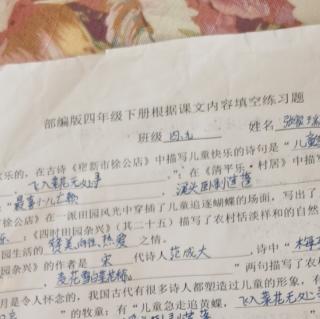 部编版四年级下册根据课文内容填空练习题
班级 四 姓名
乐的，在古诗《宿新市徐公店》中描写儿童快乐的诗句是“儿童
飞入菜花无处寻”。在《清平乐·村居》中描写
最喜小儿亡赖 溪头卧剥莲蓬
徐公店》在一派田园风光中穿插了儿童追逐蝴蝶的场面，写出了
《四时田园杂兴》（其二十五）描写了农村恬淡祥和的自然
园生活的 热爱 之情。
园杂兴》的作者是 宋 代诗人 范成大 ，诗中“梅子
麦花雪白菜花稀 ”两句描写了农村
月是令人怀念的，我国古代有很多诗人都塑造过儿童的形象，有
”的牧童；有“儿童急走追黄蝶，飞入菜花无处